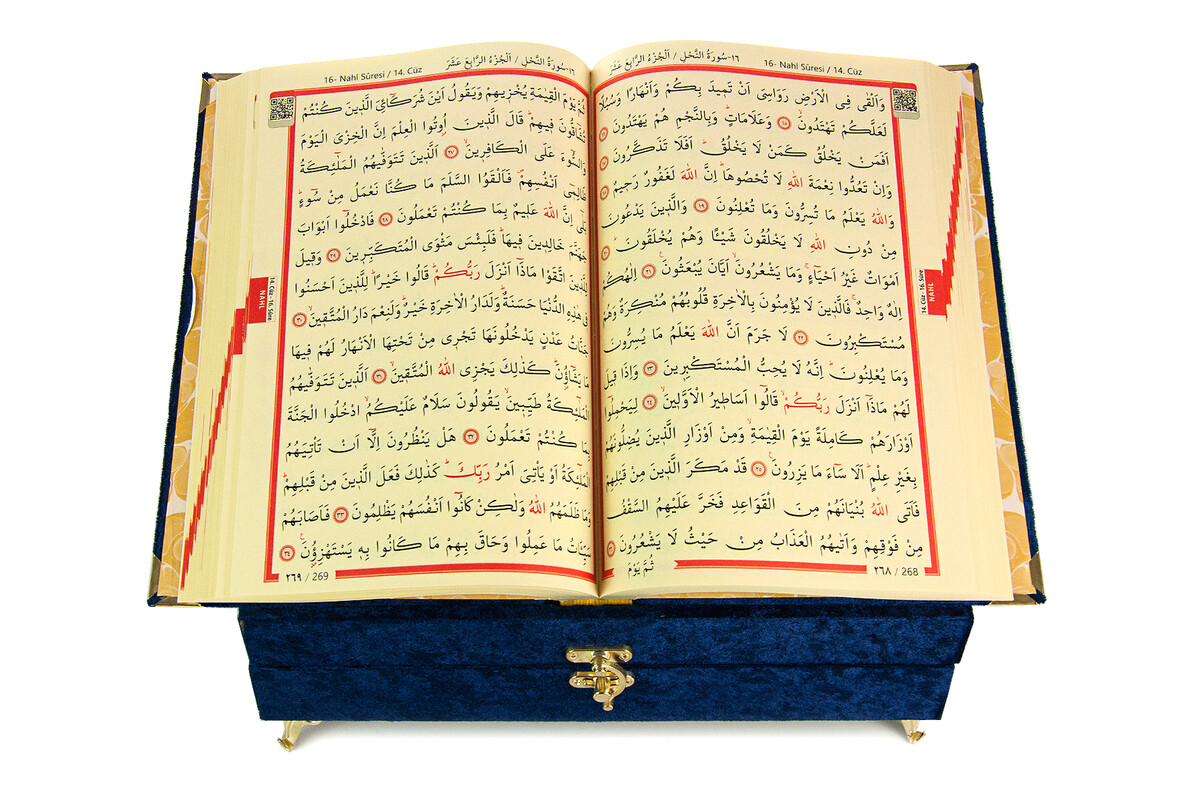 ١٦-سُورَةُ النَّحْلِ / اَلْجُزْءُ الرَّابِعَ عَشَرَ 16- Nahl Sûresi / 14. Cüz
وَاَلْقٰى فِى الْاَرْضِ رَوَاسِىَ اَنْ تَمٖيدَ بِكُمْ وَاَنْهَارًا وَسُبُلًا
لَعَلَّكُمْ تَهْتَدُونَۙ ١٥ وَعَلَامَاتٍؕ وَبِالنَّجْمِ هُمْ يَهْتَدُونَ ١٦
اَفَمَنْ يَخْلُقُ كَمَنْ لَا يَخْلُقُؕ اَفَلَا تَذَكَّرُونَ ١٧
وَاِنْ تَعُدُّوا نِعْمَةَ اللّٰهِ لَا تُحْصُوهَاؕ اِنَّ اللّٰهَ لَغَفُورٌ رَحٖيمٌ ١٨
وَاللّٰهُ يَعْلَمُ مَا تُسِرُّونَ وَمَا تُعْلِنُونَ ١٩ وَالَّذٖينَ يَدْعُونَ
مِنْ دُونِ اللّٰهِ لَا يَخْلُقُونَ شَيْـًٔا وَهُمْ يُخْلَقُونَؕ ٢٠
اَمْوَاتٌ غَيْرُ اَحْيَاءٍۚ وَمَا يَشْعُرُونَۙ اَيَّانَ يُبْعَثُونَۚ ٢١ اِلٰهُكُمْ
اِلٰهٌ وَاحِدٌۚ فَالَّذٖينَ لَا يُؤْمِنُونَ بِالْاٰخِرَةِ قُلُوبُهُمْ مُنْكِرَةٌ وَهُمْ
مُسْتَكْبِرُونَ ٢٢ لَا جَرَمَ اَنَّ اللّٰهَ يَعْلَمُ مَا يُسِرُّونَ
وَمَا يُعْلِنُونَؕ اِنَّهُ لَا يُحِبُّ الْمُسْتَكْبِرٖينَ ٢٣ وَاِذَا قٖيلَ
لَهُمْ مَاذَٓا اَنْزَلَ رَبُّكُمْۙ قَالُٓوا اَسَاطٖيرُ الْاَوَّلٖينَۙ ٢٤ لِيَحْمِلُٓوا
اَوْزَارَهُمْ كَامِلَةً يَوْمَ الْقِيٰمَةِۙ وَمِنْ اَوْزَارِ الَّذٖينَ يُضِلُّونَهُمْ
بِغَيْرِ عِلْمٍؕ اَلَا سَٓاءَ مَا يَزِرُونَࣖ ٢٥ قَدْ مَكَرَ الَّذٖينَ مِنْ قَبْلِهِمْ
فَاَتَى اللّٰهُ بُنْيَانَهُمْ مِنَ الْقَوَاعِدِ فَخَرَّ عَلَيْهِمُ السَّقْفُ
مِنْ فَوْقِهِمْ وَاَتٰيهُمُ الْعَذَابُ مِنْ حَيْثُ لَا يَشْعُرُونَ ٢٦
ثُمَّ يَوْمَ
٢٦٨ / 268
14. Cüz - 16. Sûre
NAHL
16- Nahl Sûresi / 14. Cüz ١٦-سُورَةُ النَّحْلِ / اَلْجُزْءُ الرَّابِعَ عَشَرَ
ثُمَّ يَوْمَ الْقِيٰمَةِ يُخْزٖيهِمْ وَيَقُولُ اَيْنَ شُرَكَٓاءِىَ الَّذٖينَ كُنْتُمْ
تُشَٓاقُّونَ فٖيهِمْؕ قَالَ الَّذٖينَ اُوتُوا الْعِلْمَ اِنَّ الْخِزْىَ الْيَوْمَ
وَالسُّٓوءَ عَلَى الْكَافِرٖينَۙ ٢٧ اَلَّذٖينَ تَتَوَفّٰيهُمُ الْمَلٰٓئِكَةُ
ظَالِمٖٓى اَنْفُسِهِمْࣕ فَاَلْقَوُا السَّلَمَ مَا كُنَّا نَعْمَلُ مِنْ سُٓوءٍؕ
بَلٰٓى اِنَّ اللّٰهَ عَلٖيمٌ بِمَا كُنْتُمْ تَعْمَلُونَ ٢٨ فَادْخُلُٓوا اَبْوَابَ
جَهَنَّمَ خَالِدٖينَ فٖيهَاؕ فَلَبِئْسَ مَثْوَى الْمُتَكَبِّرٖينَ ٢٩ وَقٖيلَ
لِلَّذٖينَ اتَّقَوْا مَاذَٓا اَنْزَلَ رَبُّكُمْؕ قَالُوا خَيْرًاؕ لِلَّذٖينَ اَحْسَنُوا
فٖى هٰذِهِ الدُّنْيَا حَسَنَةٌؕ وَلَدَارُ الْاٰخِرَةِ خَيْرٌؕ وَلَنِعْمَ دَارُ الْمُتَّقٖينَۙ ٣٠
جَنَّاتُ عَدْنٍ يَدْخُلُونَهَا تَجْرٖى مِنْ تَحْتِهَا الْاَنْهَارُ لَهُمْ فٖيهَا
مَا يَشَٓاؤُ۫نَؕ كَذٰلِكَ يَجْزِى اللّٰهُ الْمُتَّقٖينَۙ ٣١ اَلَّذٖينَ تَتَوَفّٰيهُمُ
الْمَلٰٓئِكَةُ طَيِّبٖينَۙ يَقُولُونَ سَلَامٌ عَلَيْكُمُۙ ادْخُلُوا الْجَنَّةَ
بِمَا كُنْتُمْ تَعْمَلُونَ ٣٢ هَلْ يَنْظُرُونَ اِلَّٓا اَنْ تَاْتِيَهُمُ
الْمَلٰٓئِكَةُ اَوْ يَاْتِىَ اَمْرُ رَبِّكَؕ كَذٰلِكَ فَعَلَ الَّذٖينَ مِنْ قَبْلِهِمْؕ
وَمَا ظَلَمَهُمُ اللّٰهُ وَلٰكِنْ كَانُٓوا اَنْفُسَهُمْ يَظْلِمُونَ ٣٣ فَاَصَابَهُمْ
سَيِّـَٔاتُ مَا عَمِلُوا وَحَاقَ بِهِمْ مَا كَانُوا بِهٖ يَسْتَهْزِؤُ۫نَࣖ ٣٤
٢٦٩ / 269
14. Cüz - 16. Sûre
NAHL